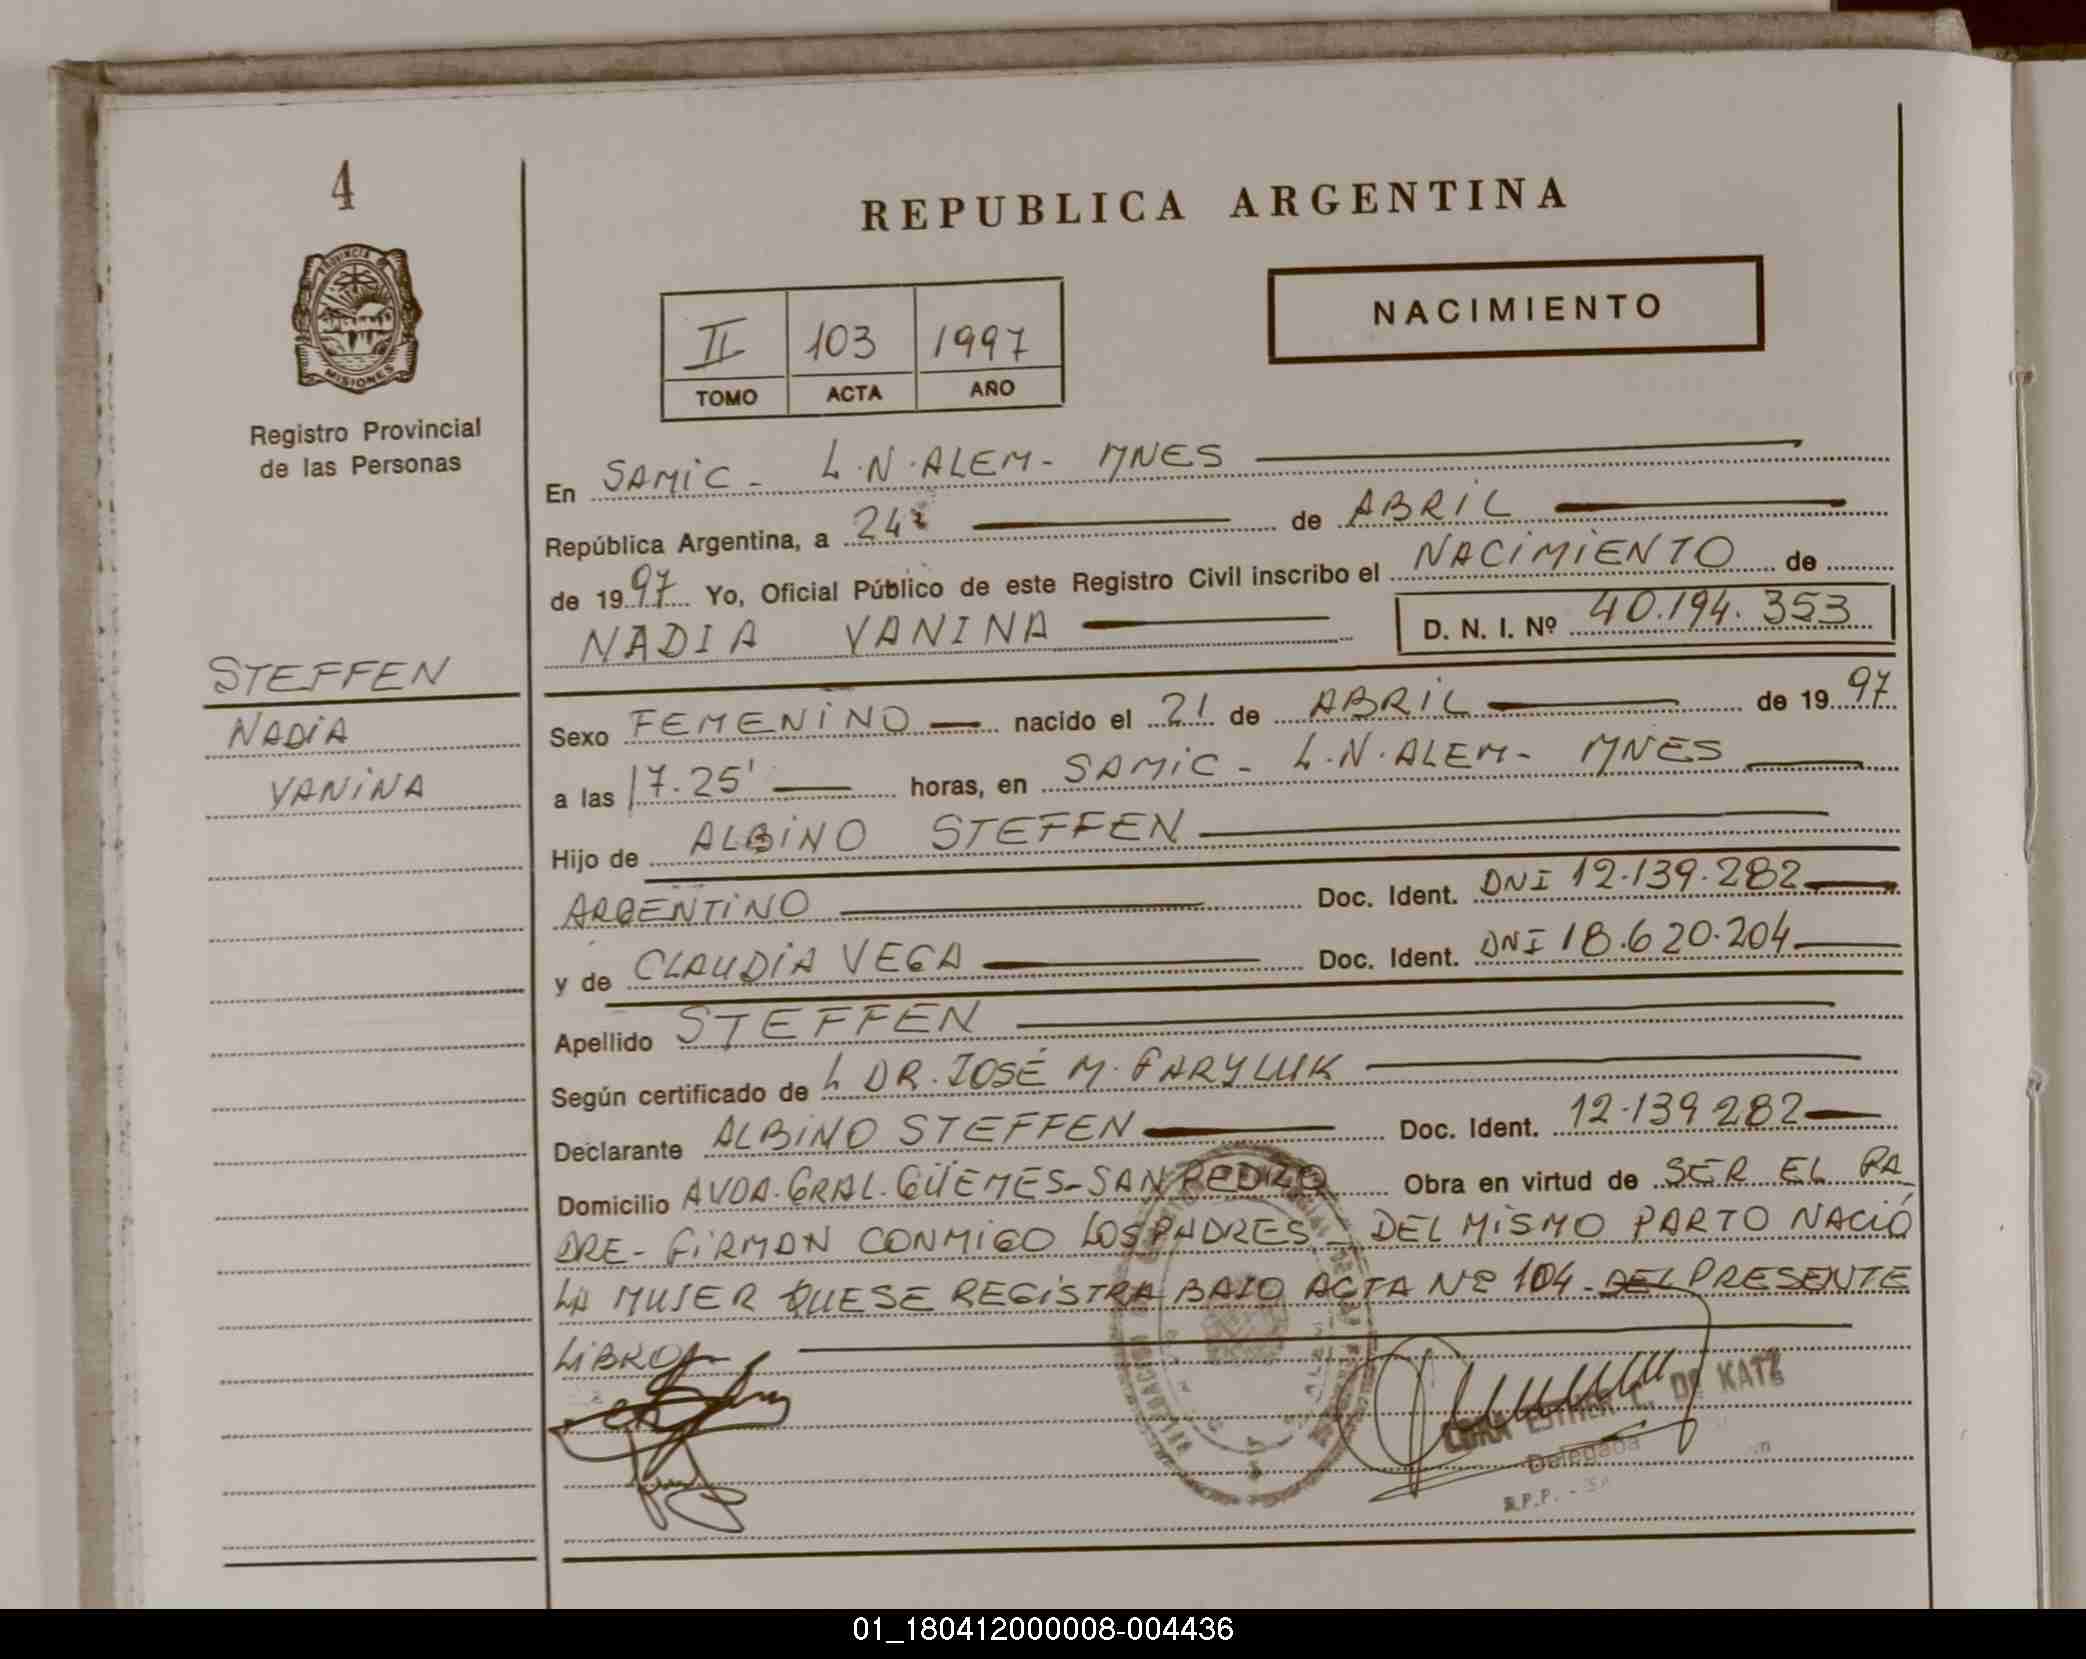 4
PROVINCIA DE
MISIONES
Registro Provincial
de las Personas
STEFFEN
NADIA
YANINA
REPUBLICA ARGENTINA
NACIMIENTO
II 103 1997
TOMO ACTA AÑO
En SAMIC - L.N.ALEM - MNES
República Argentina, a 24 de ABRIL
de 1997 Yo, Oficial Público de este Registro Civil inscribo el NACIMIENTO de
NADIA YANINA D. N. I. Nº 40.194.353
Sexo FEMENINO nacido el 21 de ABRIL de 1997
a las 17.25' horas, en SAMIC - L.N.ALEM - MNES
Hijo de ALBINO STEFFEN
ARGENTINO Doc. Ident. DNI 12.139.282
y de CLAUDIA VEGA Doc. Ident. DNI 18.620.204
Apellido STEFFEN
Según certificado de L DR. JOSÉ M. FARYLUK
Declarante ALBINO STEFFEN Doc. Ident. 12.139.282
Domicilio AVDA. GRAL. GÜEMES - SAN PEDRO Obra en virtud de SER EL PA
DRE - FIRMAN CONMIGO LOS PADRES - DEL MISMO PARTO NACIÓ
LA MUJER QUE SE REGISTRA BAJO ACTA Nº 104 - DEL PRESENTE
LIBRO
DE KATZ
Delegada
R.P.P. -
01_180412000008-004436